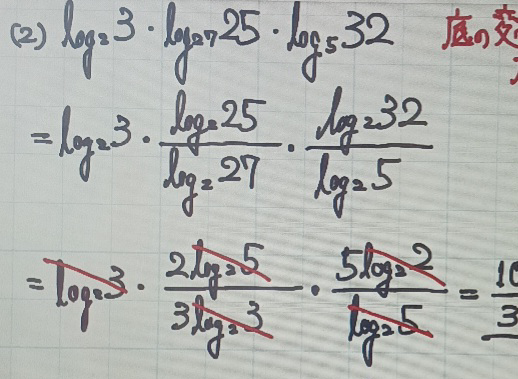 (2) log₂3・log₂₇25・log₅32 底の変
= log₂3・log₂25/log₂27・log₂32/log₂5
= log₂3・2log₂5/3log₂3・5log₂2/log₂5 = 10/3